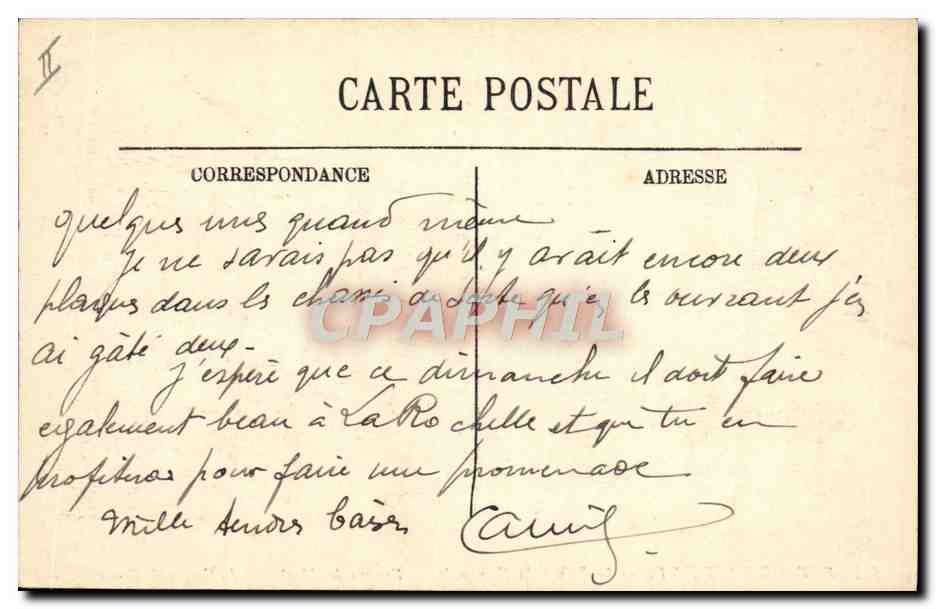 II
CARTE POSTALE
CORRESPONDANCE
ADRESSE
quelques unes quand même
Je ne savais pas qu'il y avait encore deux
plaques dans les chassis de sorte qu'en les ouvrant j'en
ai gâté deux.
J'espère que ce dimanche il doit faire
egalement beau à La Rochelle et que tu en
profiteras pour faire une promenade
Mille tendres baisers
CPAPHIL